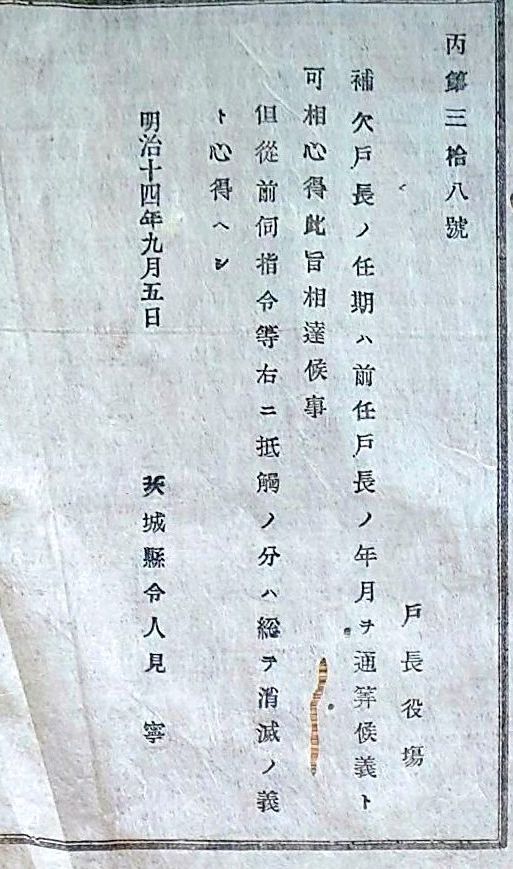 丙第三拾八號
戸長役塲
補欠戸長ノ任期ハ前任戸長ノ年月ヲ通筭候義ト
可相心得此旨相達候事
但從前伺指令等右ニ抵觸ノ分ハ総テ消滅ノ義
ト心得ヘシ
明治十四年九月五日
茨城縣令人見 寧